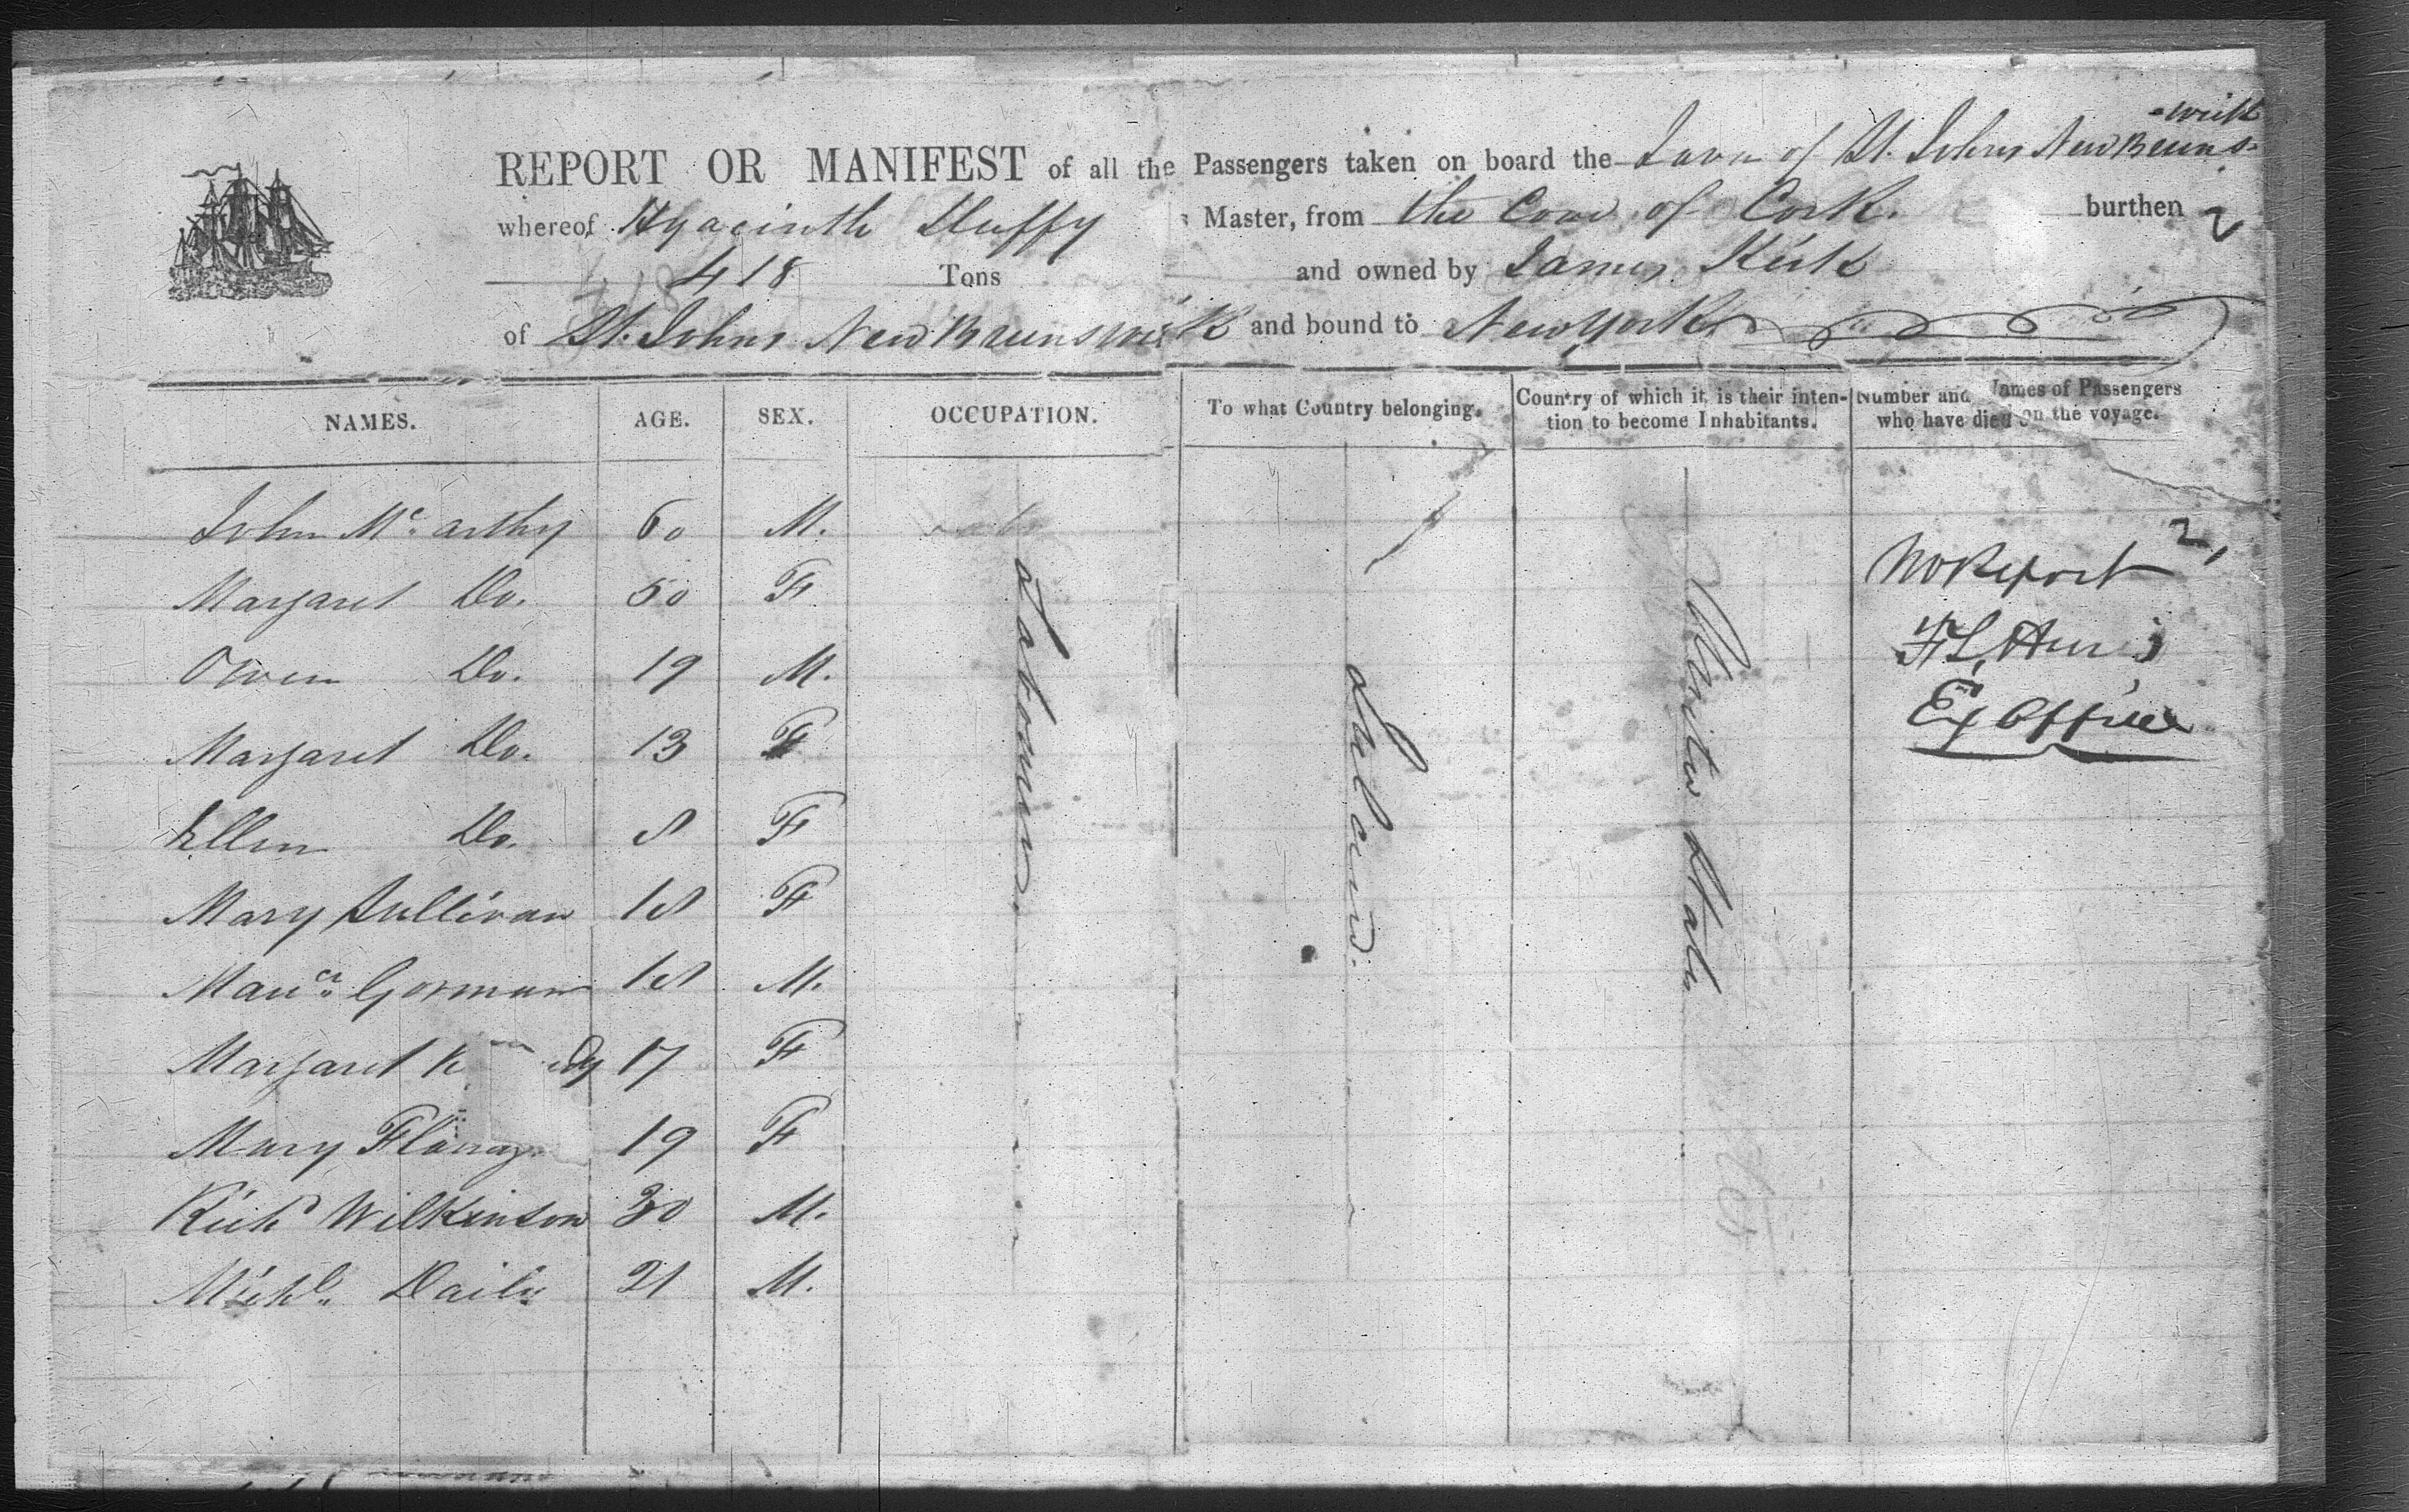 REPORT OR MANIFEST of all the Passengers taken on board the Java of St. Johns New Bruns-
-wick
whereof Hyacinth Duffy Master, from the Cove of Cork. burthen
418 Tons and owned by James Kirk
of St. Johns New Brunswick and bound to New York
NAMES. AGE. SEX. OCCUPATION. To what Country belonging. Country of which it is their inten- Number and Names of Passengers
tion to become Inhabitants. who have died on the voyage.
John Mc arthy 60 M.
Margaret Do. 50 F
Owen Do. 19 M.
Margaret Do. 13 F
Ellen Do. 8 F
Mary Sullivan 18 F
Maur. Gorman 18 M.
Margaret K edy 17 F
Mary Flanag 19 F
Richd Wilkinson 30 M.
Michl. Daily 21 M.
Labourers.
Ireland.
United States
2
No Report
Ex Officer